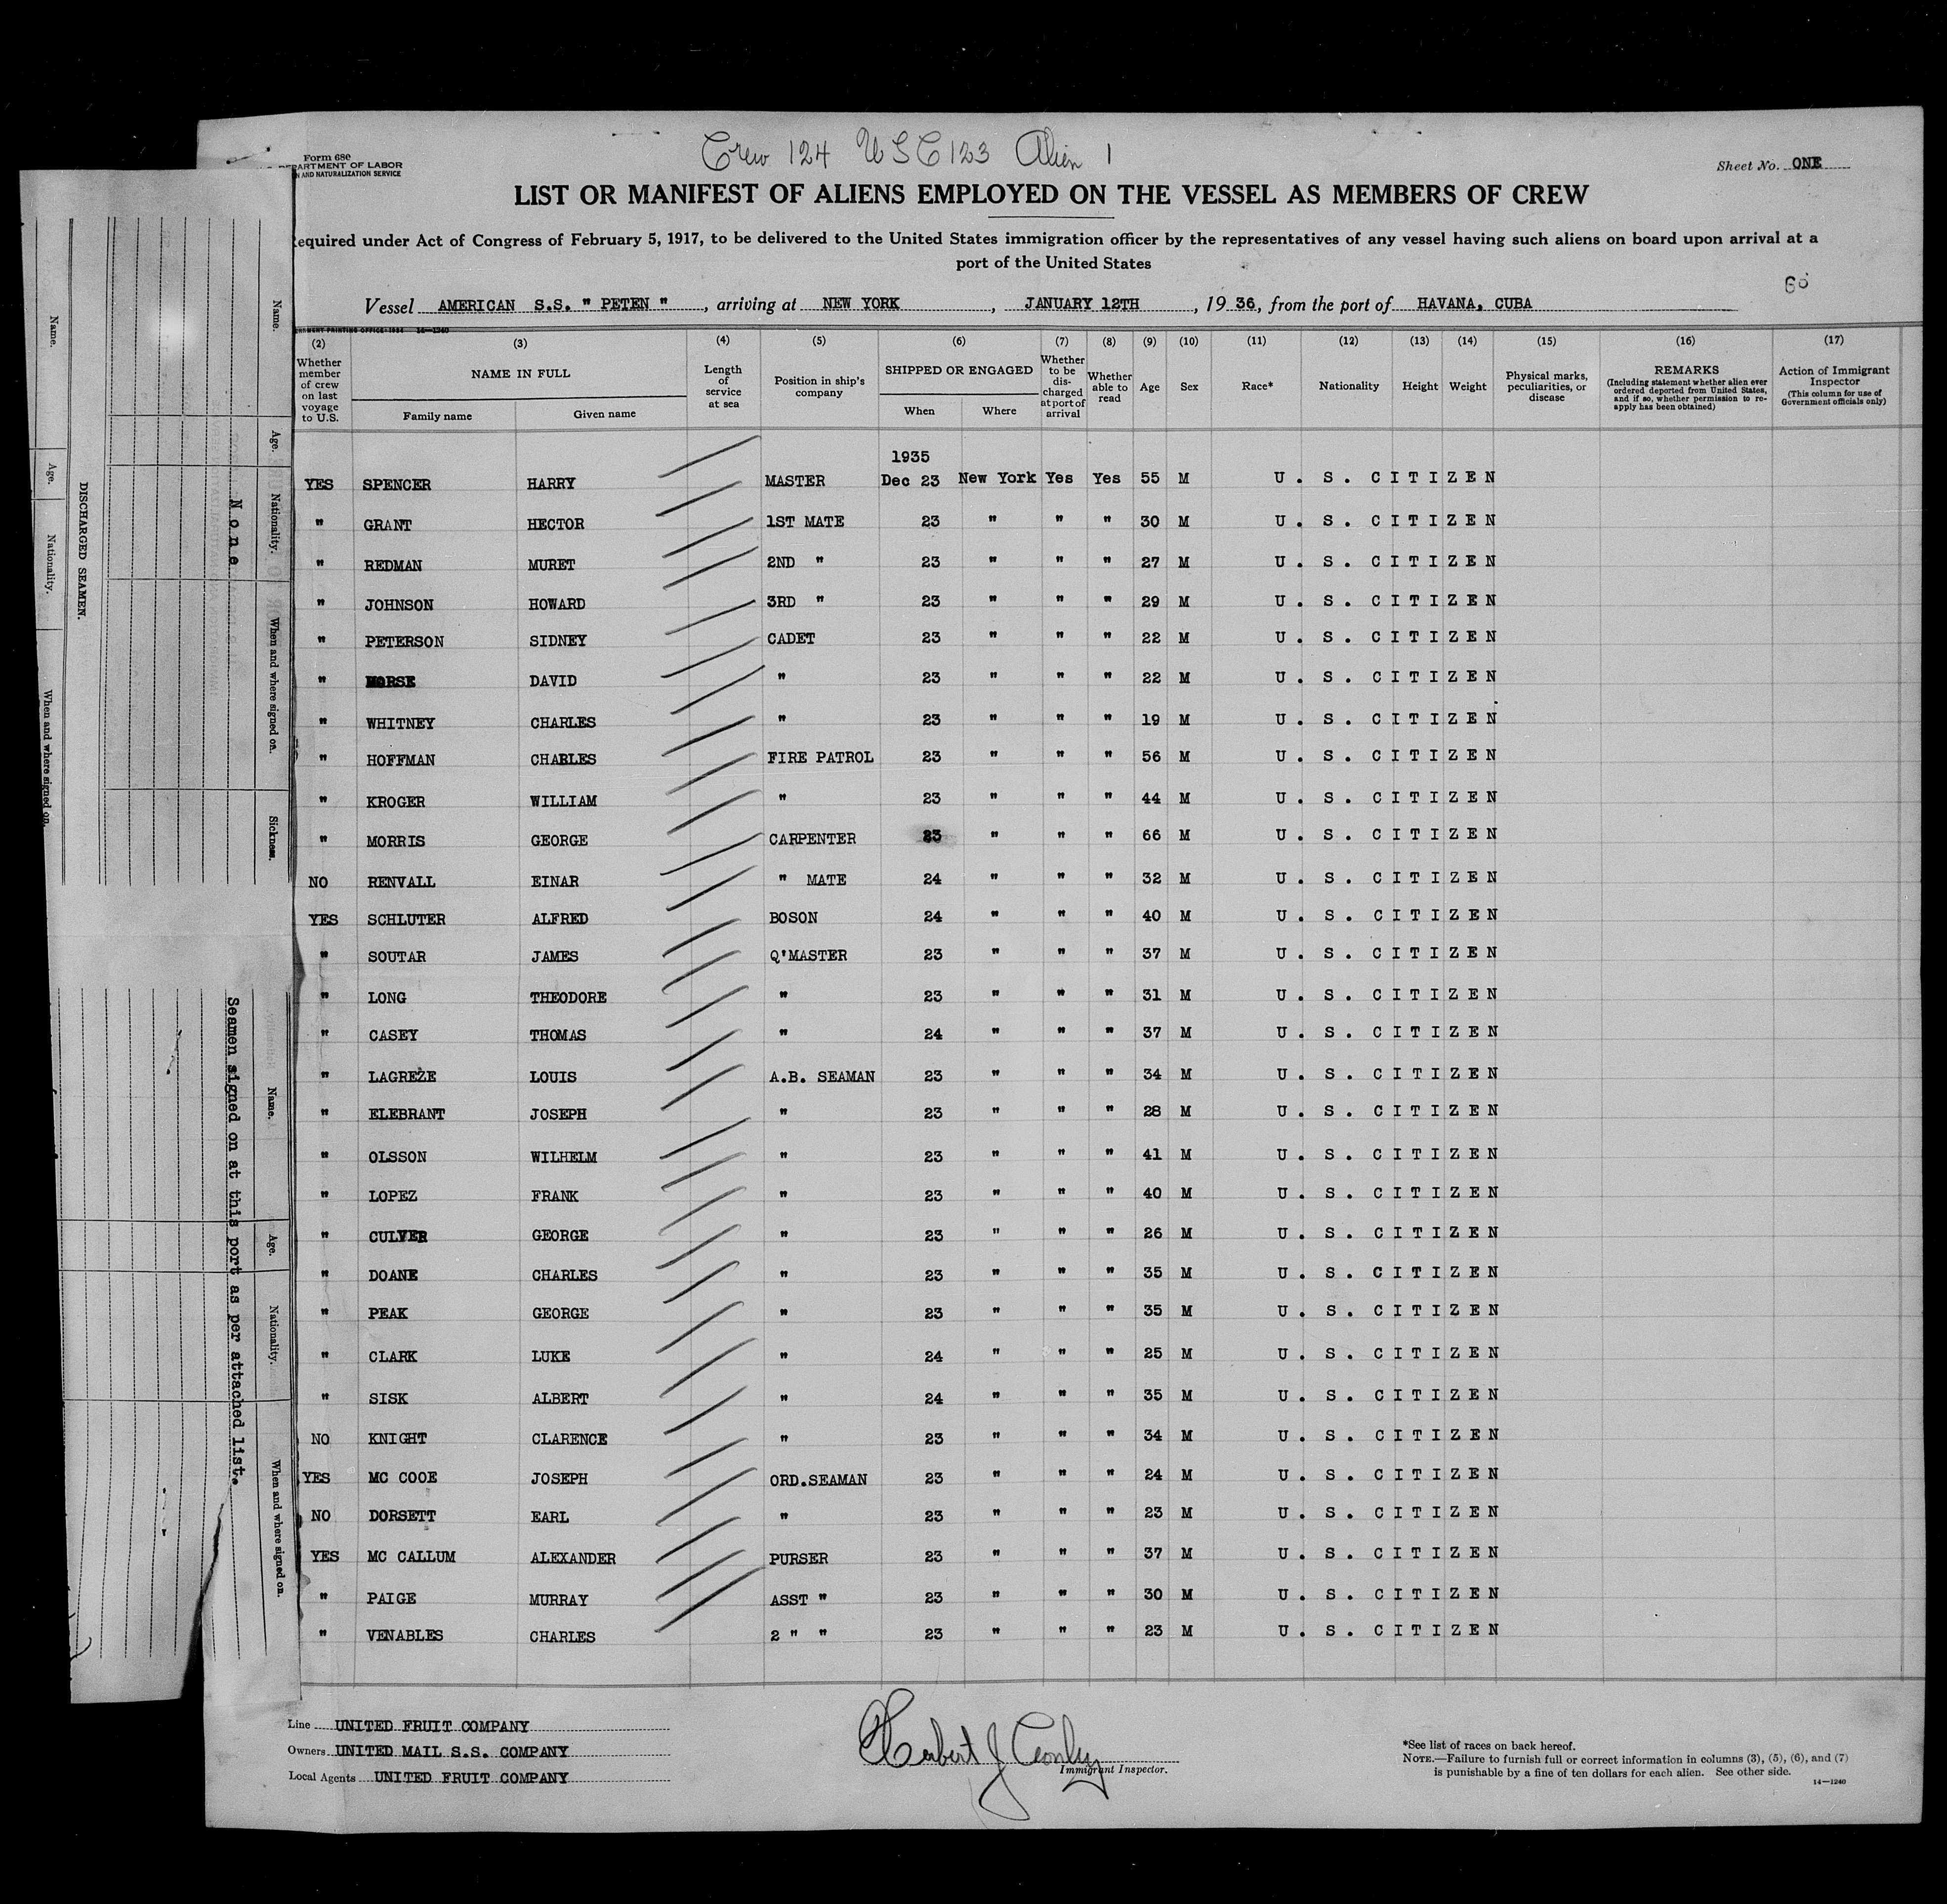 Crew 124 USC 123 Alien 1
Form 680
DEPARTMENT OF LABOR
N AND NATURALIZATION SERVICE
Sheet No. ONE
LIST OR MANIFEST OF ALIENS EMPLOYED ON THE VESSEL AS MEMBERS OF CREW
equired under Act of Congress of February 5, 1917, to be delivered to the United States immigration officer by the representatives of any vessel having such aliens on board upon arrival at a
port of the United States
60
Vessel AMERICAN S.S. " PETEN ", arriving at NEW YORK, JANUARY 12TH, 1936, from the port of HAVANA, CUBA
(2) (3) (4) (5) (6) (7) (8) (9) (10) (11) (12) (13) (14) (15) (16) (17)
Whether member of crew on last voyage to U.S. NAME IN FULL Family name Given name Length of service at sea Position in ship's company SHIPPED OR ENGAGED When Where Whether to be discharged at port of arrival Whether able to read Age Sex Race* Nationality Height Weight Physical marks, peculiarities, or disease REMARKS (Including statement whether alien ever ordered deported from United States, and if so, whether permission to re-apply has been obtained) Action of Immigrant Inspector (This column for use of Government officials only)
1935
YES SPENCER HARRY MASTER Dec 23 New York Yes Yes 55 M U. S. CITIZEN
" GRANT HECTOR 1ST MATE 23 " " " 30 M U. S. CITIZEN
" REDMAN MURET 2ND " 23 " " " 27 M U. S. CITIZEN
" JOHNSON HOWARD 3RD " 23 " " " 29 M U. S. CITIZEN
" PETERSON SIDNEY CADET 23 " " " 22 M U. S. CITIZEN
" MORSE DAVID " 23 " " " 22 M U. S. CITIZEN
" WHITNEY CHARLES " 23 " " " 19 M U. S. CITIZEN
" HOFFMAN CHARLES FIRE PATROL 23 " " " 56 M U. S. CITIZEN
" KROGER WILLIAM " 23 " " " 44 M U. S. CITIZEN
" MORRIS GEORGE CARPENTER 23 " " " 66 M U. S. CITIZEN
NO RENVALL EINAR " MATE 24 " " " 32 M U. S. CITIZEN
YES SCHLUTER ALFRED BOSON 24 " " " 40 M U. S. CITIZEN
" SOUTAR JAMES Q'MASTER 23 " " " 37 M U. S. CITIZEN
" LONG THEODORE " 23 " " " 31 M U. S. CITIZEN
" CASEY THOMAS " 24 " " " 37 M U. S. CITIZEN
" LAGREZE LOUIS A.B. SEAMAN 23 " " " 34 M U. S. CITIZEN
" ELEBRANT JOSEPH " 23 " " " 28 M U. S. CITIZEN
" OLSSON WILHELM " 23 " " " 41 M U. S. CITIZEN
" LOPEZ FRANK " 23 " " " 40 M U. S. CITIZEN
" CULVER GEORGE " 23 " " " 26 M U. S. CITIZEN
" DOANE CHARLES " 23 " " " 35 M U. S. CITIZEN
" PEAK GEORGE " 23 " " " 35 M U. S. CITIZEN
" CLARK LUKE " 24 " " " 25 M U. S. CITIZEN
" SISK ALBERT " 24 " " " 35 M U. S. CITIZEN
NO KNIGHT CLARENCE " 23 " " " 34 M U. S. CITIZEN
YES MC COOE JOSEPH ORD.SEAMAN 23 " " " 24 M U. S. CITIZEN
NO DORSETT EARL " 23 " " " 23 M U. S. CITIZEN
YES MC CALLUM ALEXANDER PURSER 23 " " " 37 M U. S. CITIZEN
" PAIGE MURRAY ASST " 23 " " " 30 M U. S. CITIZEN
" VENABLES CHARLES 2 " " 23 " " " 23 M U. S. CITIZEN
Line UNITED FRUIT COMPANY
Owners UNITED MAIL S.S. COMPANY
Local Agents UNITED FRUIT COMPANY
Herbert J Conly
Immigrant Inspector.
*See list of races on back hereof.
NOTE.—Failure to furnish full or correct information in columns (3), (5), (6), and (7)
is punishable by a fine of ten dollars for each alien. See other side.
14—1240
Name. Age. Nationality. When and where signed on. Sickness.
None
DISCHARGED SEAMEN.
Name. Age. Nationality. When and where signed on.
Name. Age. Nationality. When and where signed on.
Seamen signed on at this port as per attached list.